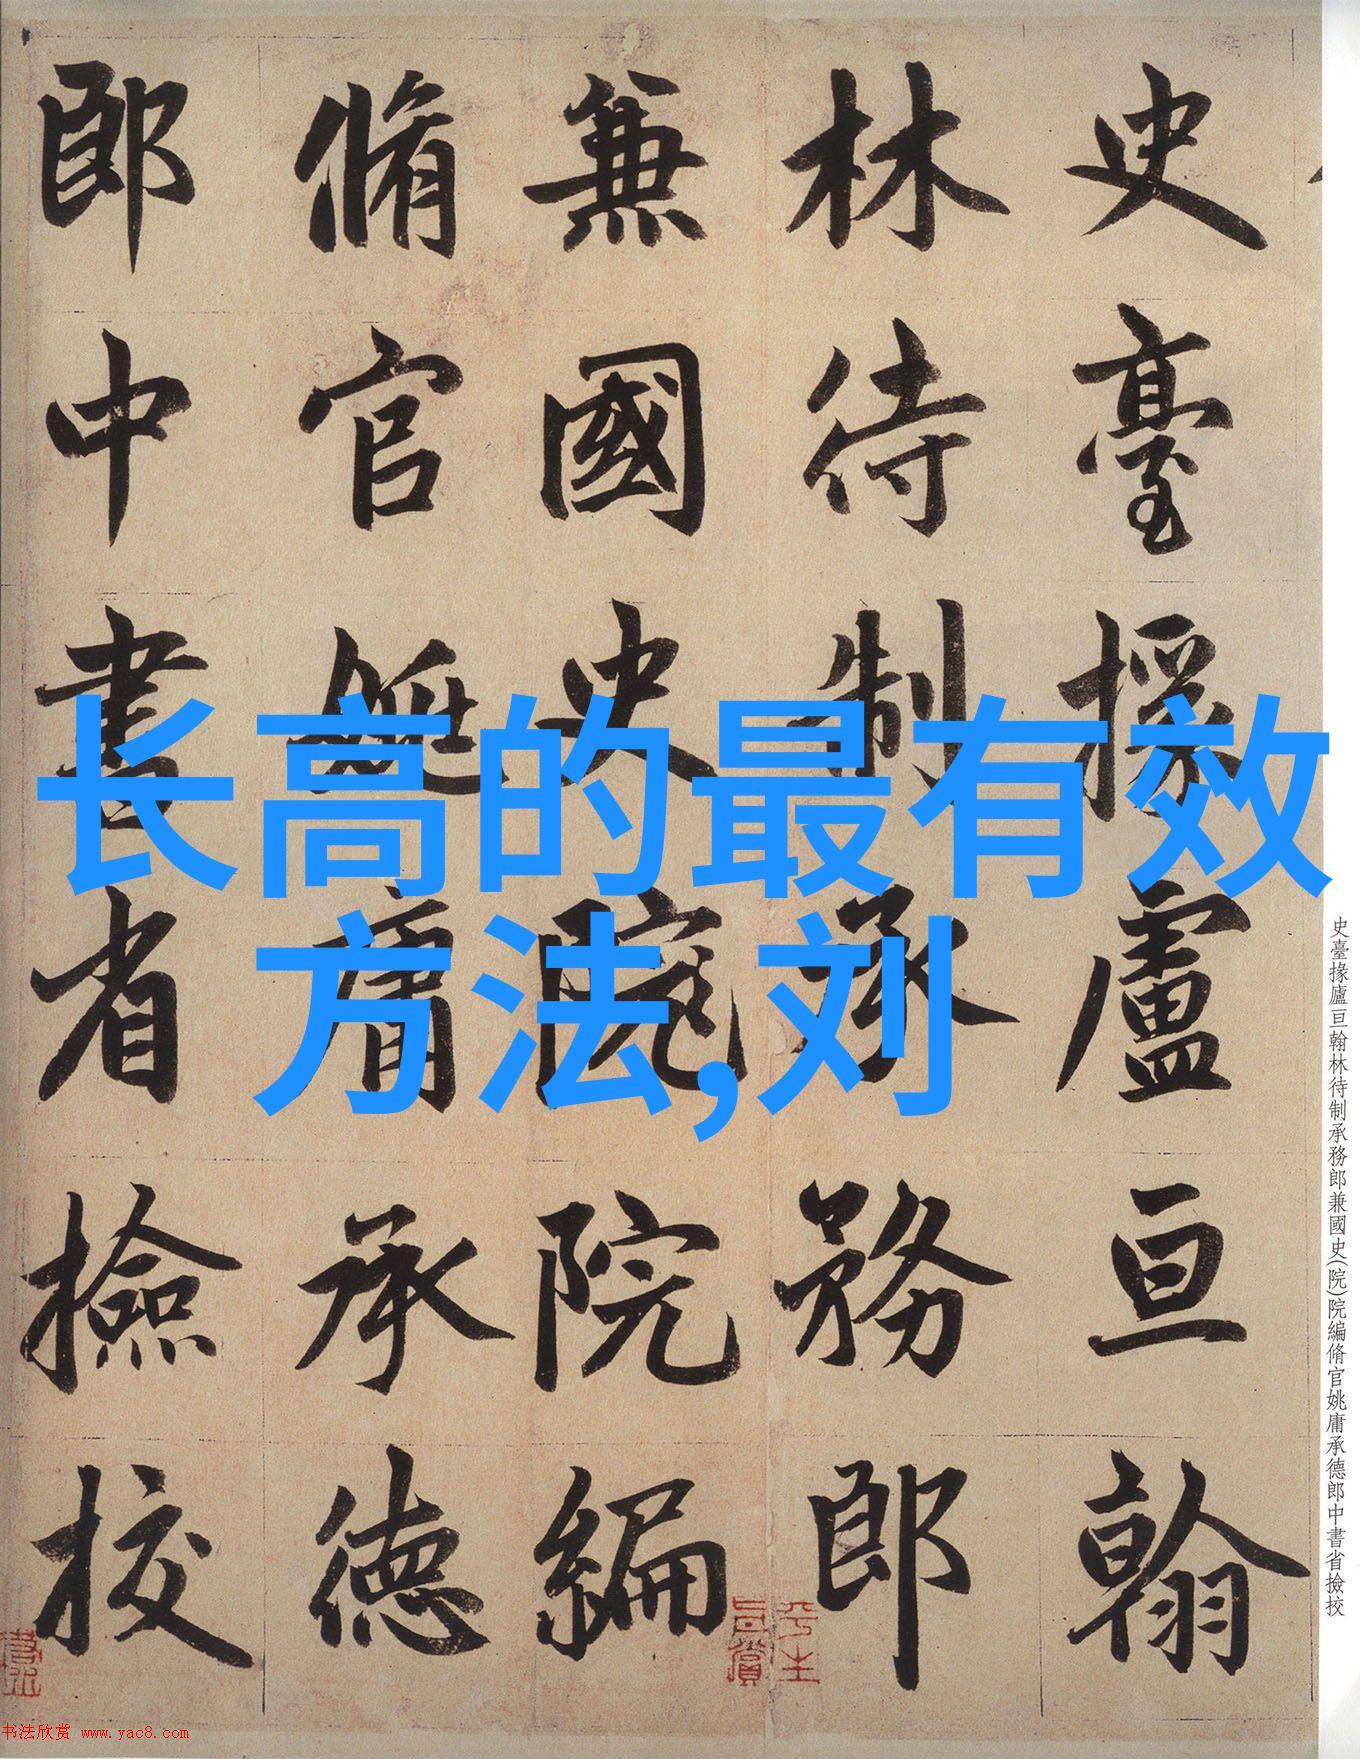 长高的最有效
方法,刘
史臺掾盧亘翰
林待制承務郎
兼國史院院編
脩官姚庸承德
郎中書省撿挍
史臺掾廬亘翰林待制承務郎兼國史(院)院編脩官姚庸承德郎中書省撿挍
平生
真賞
书法欣赏 www.yac8.com